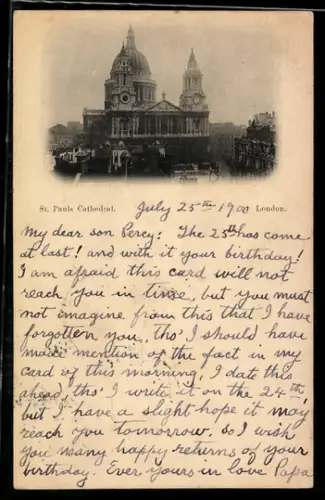 St. Pauls Cathedral. July 25th 1900 London.
My dear son Percy: The 25th has come
at last! and with it your birthday!
I am afraid this card will not
reach you in time, but you must
not imagine from this that I have
forgotten you, tho' I should have
made mention of the fact in my
card of this morning. I date this
ahead, tho' I write it on the 24th,
but I have a slight hope it may
reach you tomorrow. So I wish
you many happy returns of your
birthday. Ever yours in love Papa